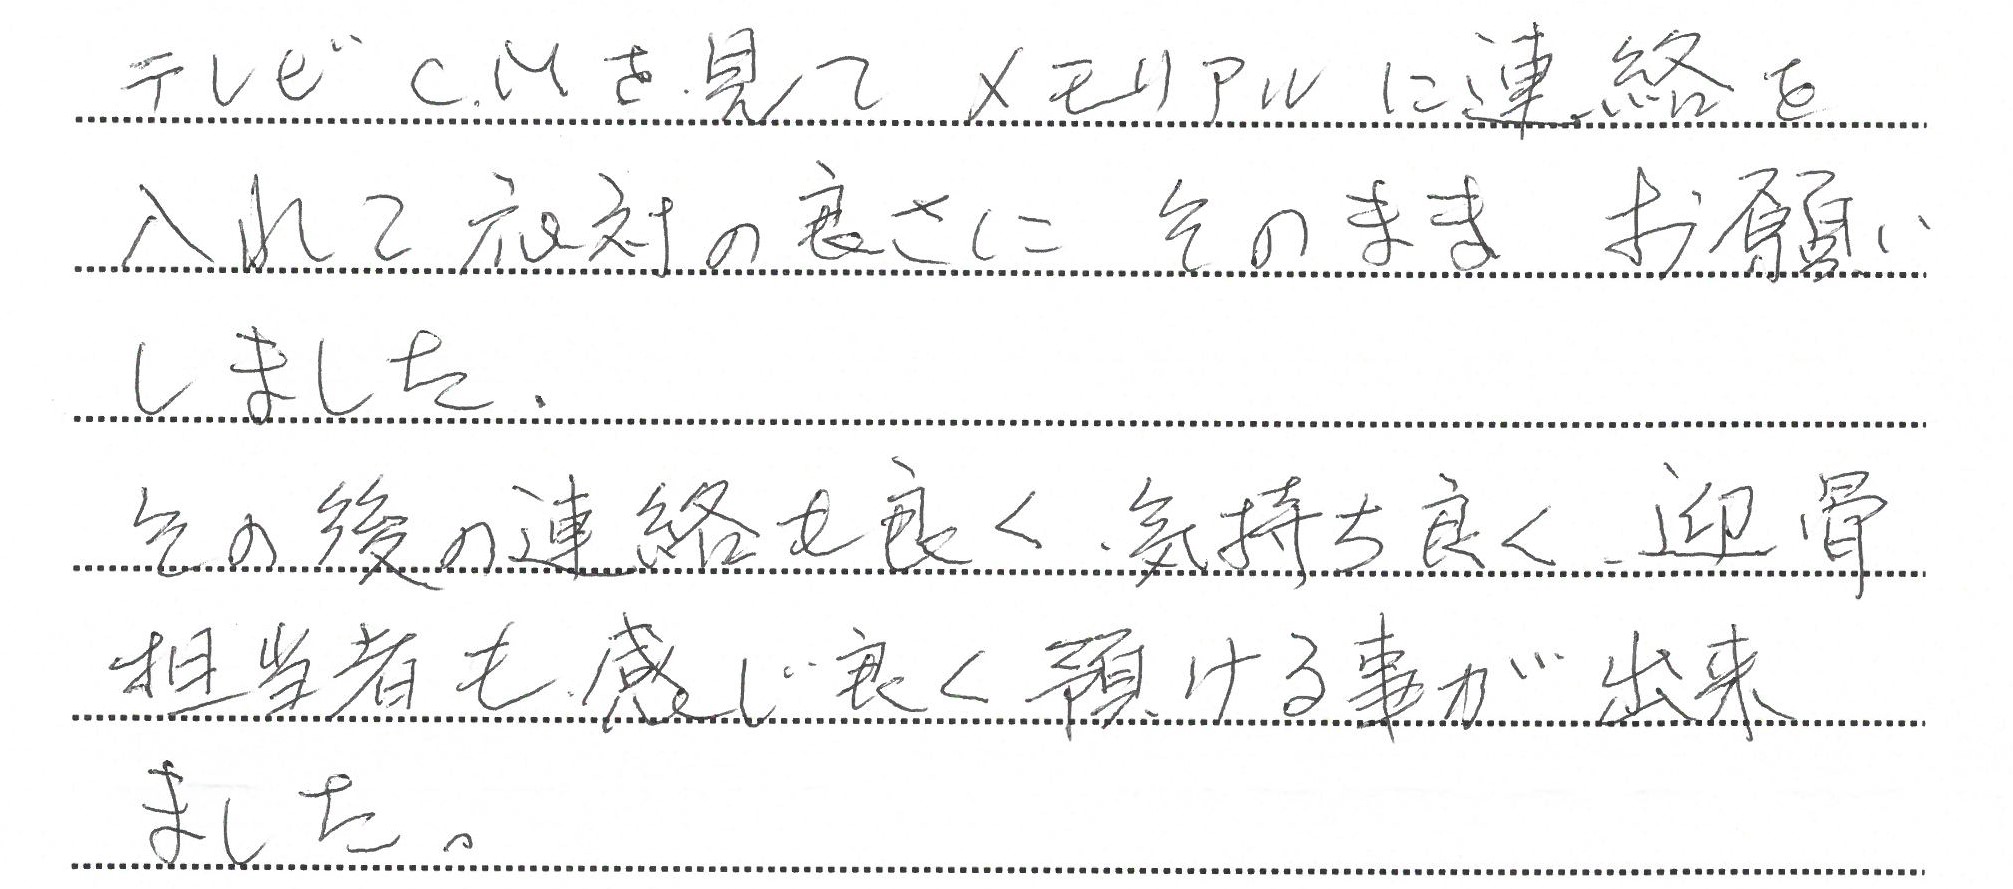 テレビC.Mを見て メモリアルに連絡を
入れて応対の良さに そのまま お願い
しました.
その後の連絡も良く、気持ち良く、迎骨
担当者も感じ良く預ける事が出来
ました。